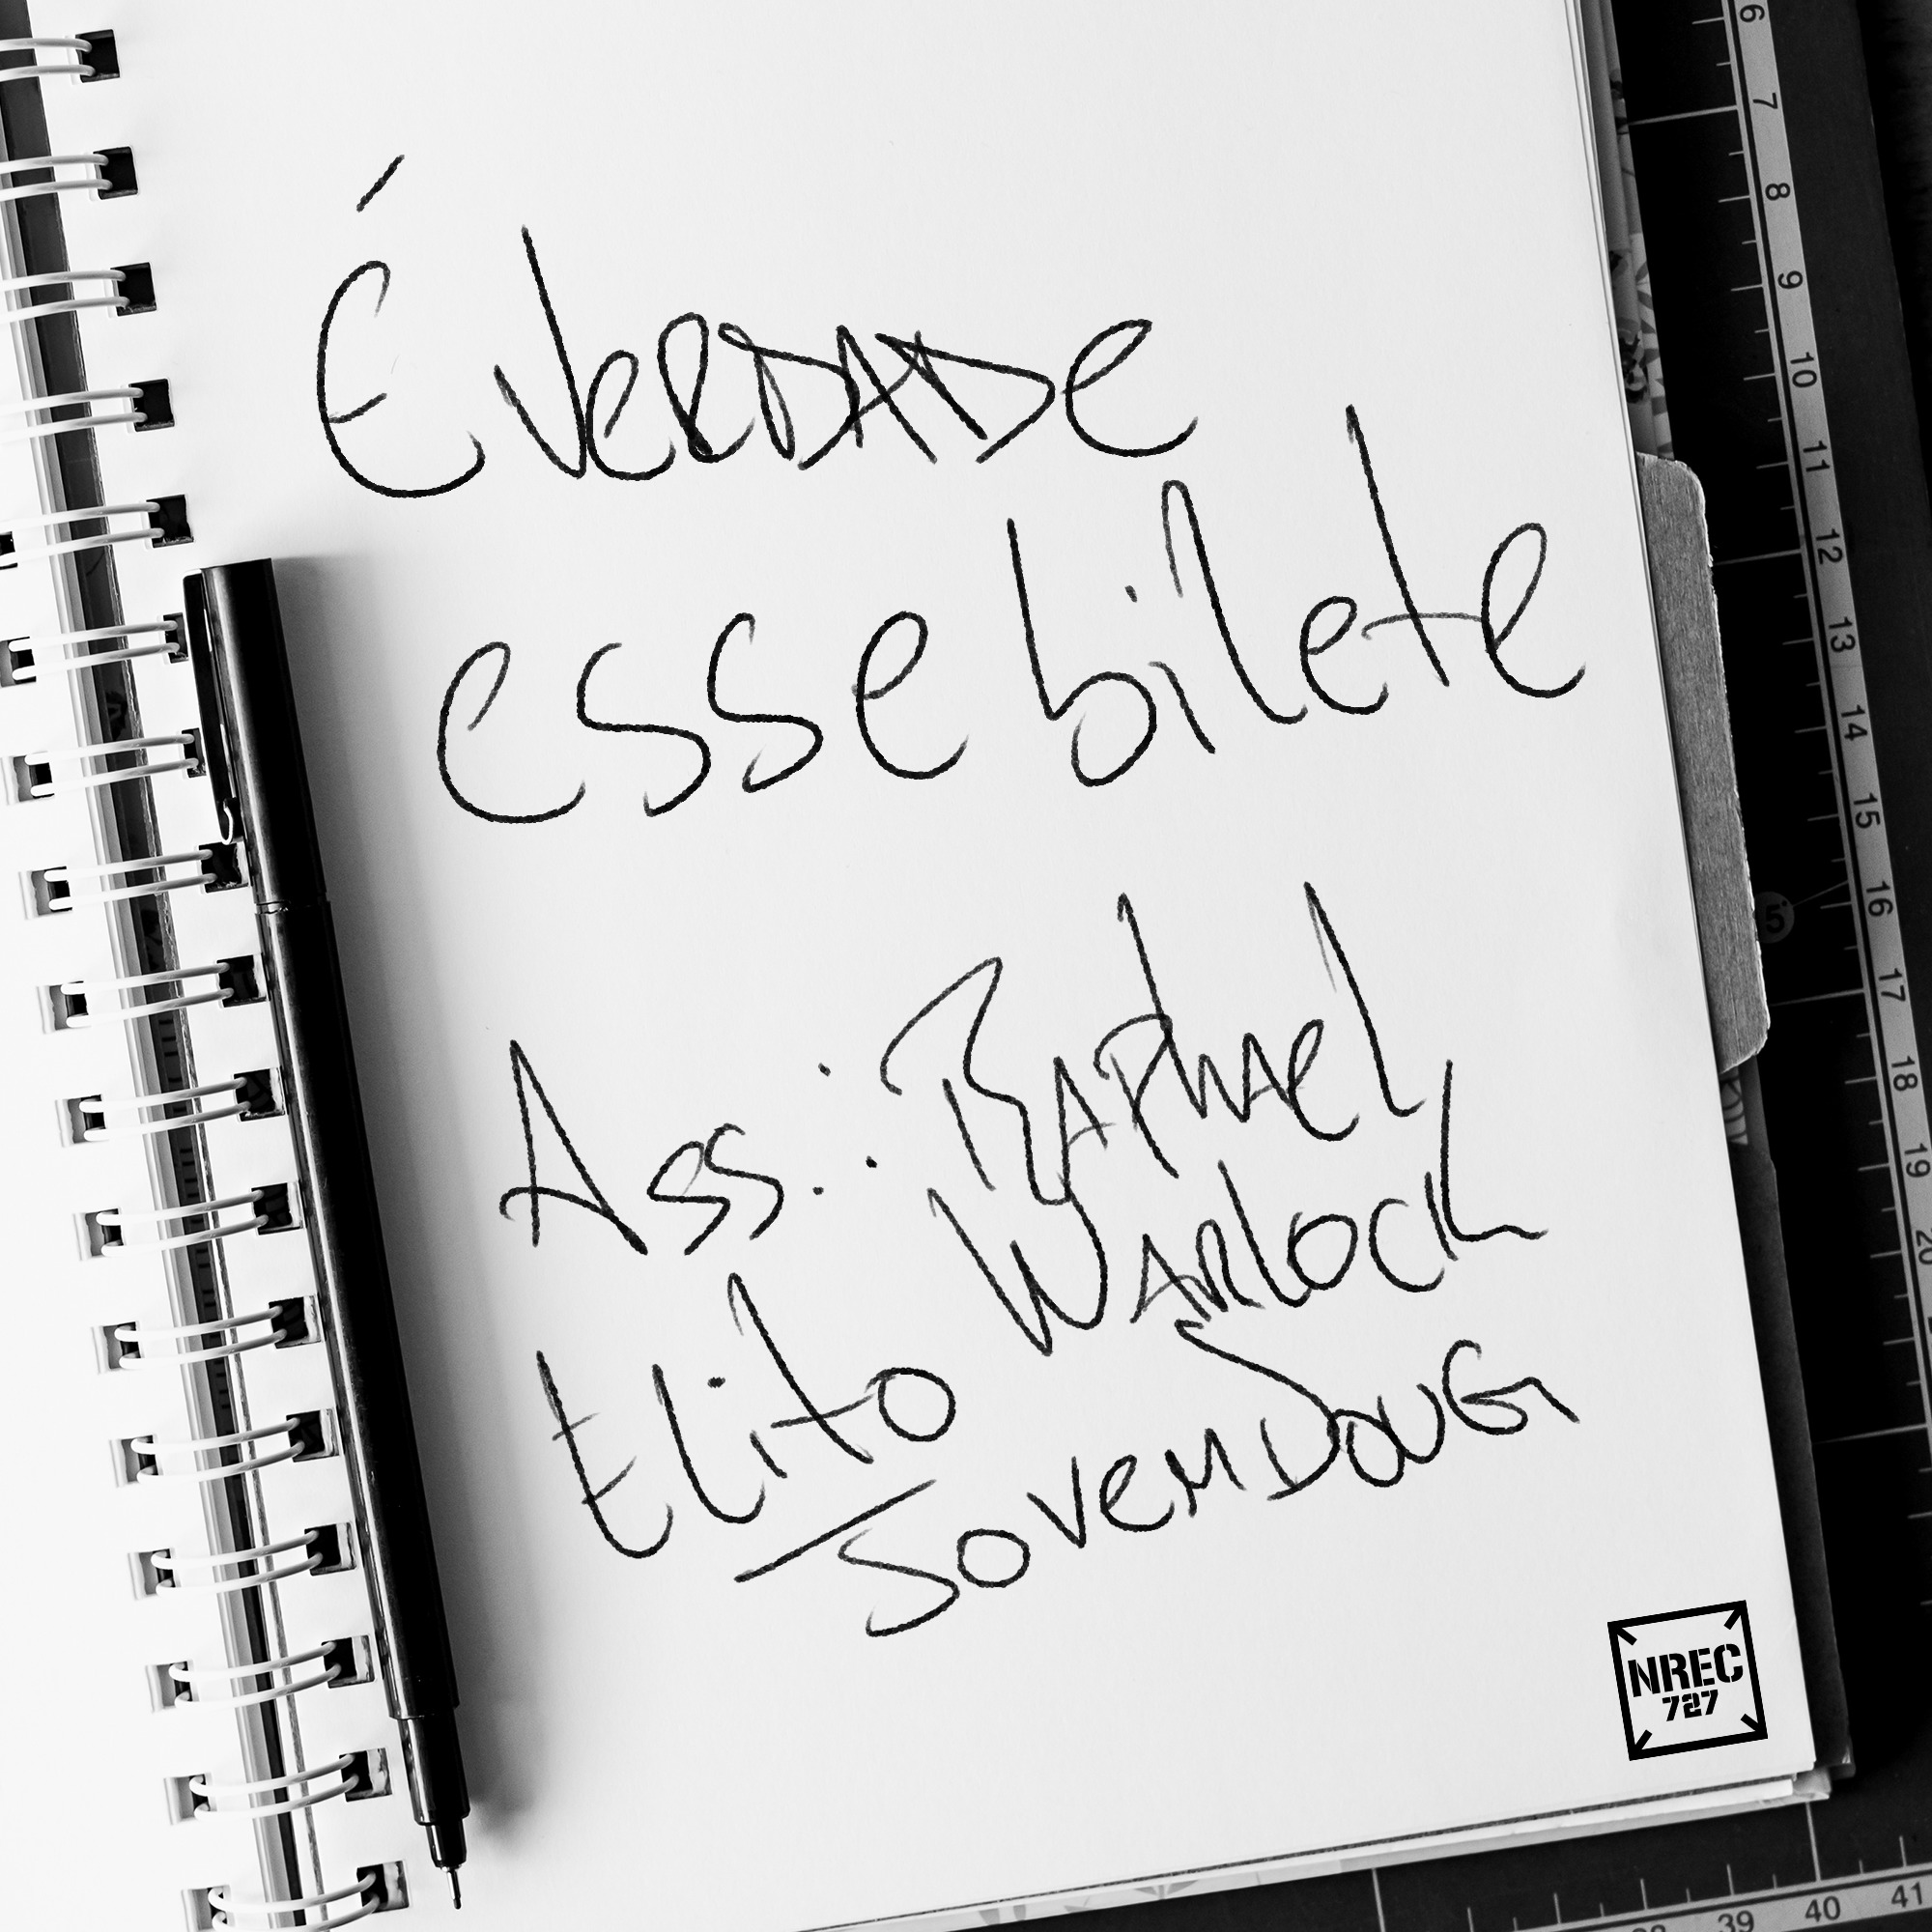 É verdade
esse bilete
Ass.: Raphael
Warlock
Elito
JovemDoug
NREC
727
6
7
8
9
10
11
12
13
14
15
16
17
18
19
20
5
39
40
41